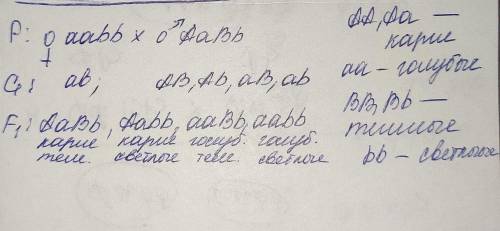 P: ♀ aabb x ♂ AaBb
G: ab; AB, Ab, aB, ab
F₁: AaBb, Aabb, aaBb, aabb
карие карие голуб. голуб.
темн. светлые темн. светлые
AA, Aa —
карие
aa – голубые
BB, Bb —
тёмные
bb – светлые